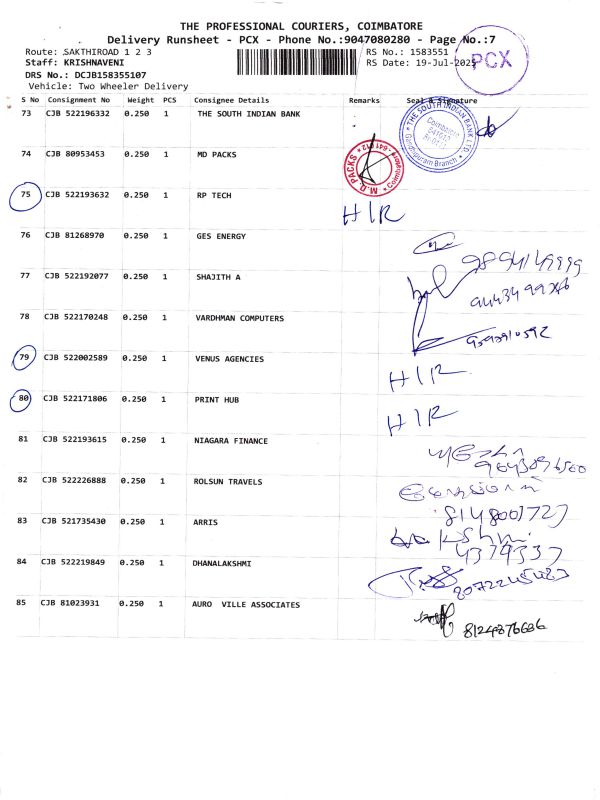 THE PROFESSIONAL COURIERS, COIMBATORE
Delivery Runsheet - PCX - Phone No.:9047080280 - Page No.:7
Route: SAKTHIROAD 1 2 3
RS No.: 1583551
Staff: KRISHNAVENI
RS Date: 19-Jul-2025
PCX
DRS No.: DCJB158355107
Vehicle: Two Wheeler Delivery
S No Consignment No Weight PCS Consignee Details Remarks Seal & Signature
73 CJB 522196332 0.250 1 THE SOUTH INDIAN BANK
THE SOUTH INDIAN BANK LTD. Coimbatore 641012 Gandhipuram Branch
74 CJB 80953453 0.250 1 MD PACKS
M.D. PACKS Coimbatore - 641 012
75 CJB 522193632 0.250 1 RP TECH H I R
76 CJB 81268970 0.250 1 GES ENERGY
9894149999
77 CJB 522192077 0.250 1 SHAJITH A
78 CJB 522170248 0.250 1 VARDHMAN COMPUTERS
79 CJB 522002589 0.250 1 VENUS AGENCIES H I R
80 CJB 522171806 0.250 1 PRINT HUB H I R
81 CJB 522193615 0.250 1 NIAGARA FINANCE
82 CJB 522226888 0.250 1 ROLSUN TRAVELS
8148001727
83 CJB 521735430 0.250 1 ARRIS
84 CJB 522219849 0.250 1 DHANALAKSHMI
85 CJB 81023931 0.250 1 AURO VILLE ASSOCIATES
8124876686